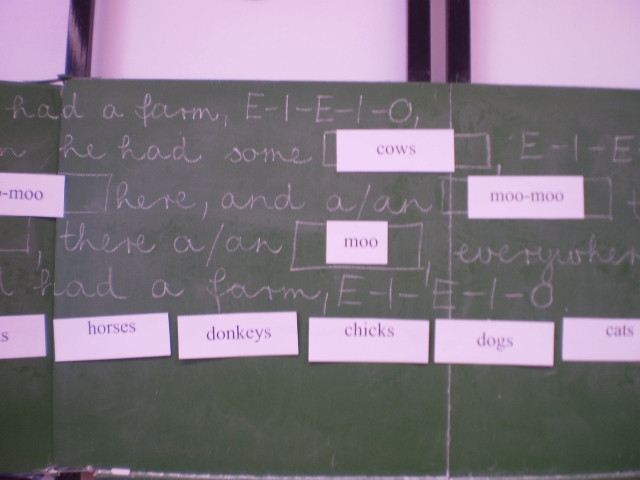 had a farm, E-I-E-I-O,
he had some cows, E-I-E
-moo here, and a/an moo-moo
, there a/an moo, everywher
had a farm, E-I-E-I-O
horses donkeys chicks dogs cats